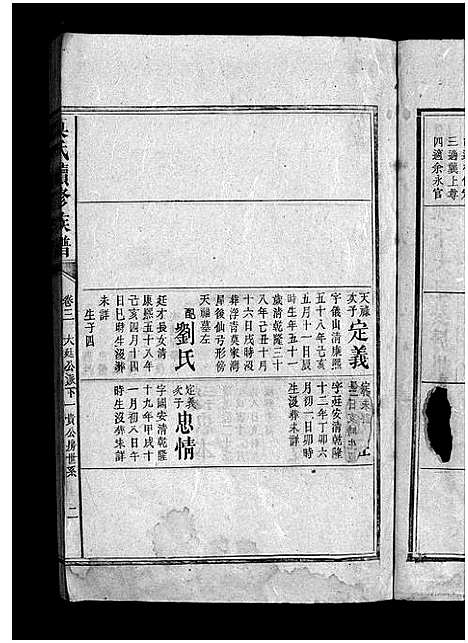 三適龔上尊
四適余永官
天祿
次子
定義
字儀山清康熙
五十八年己亥
五月十一日辰
時生年五十一
歲清乾隆三十
八年己丑十月
十六日戌時沒
葬浮青莫家灣
屋後仙弓形傍
天福墓左
配
劉氏
廷才長女清
康熙五十八年
己亥四月十四
日巳時生沒葬
未詳
生子四
字廷安清乾隆
十二年丁卯六
月初一日卯時
生沒葬未詳
定義
次子
忠情
字國安清乾隆
十九年甲戌十
一月初八日午
時生沒葬未詳
吳氏續修族譜
卷三
大廷公派下
貴公房世系
二